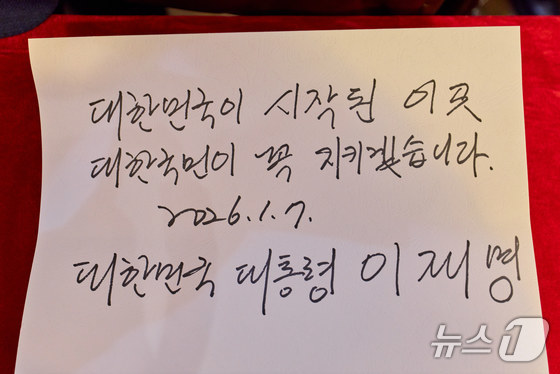 대한민국이 시작된 이곳
대한국민이 꼭 지키겠습니다.
2026.1.7.
대한민국 대통령 이재명
뉴스1